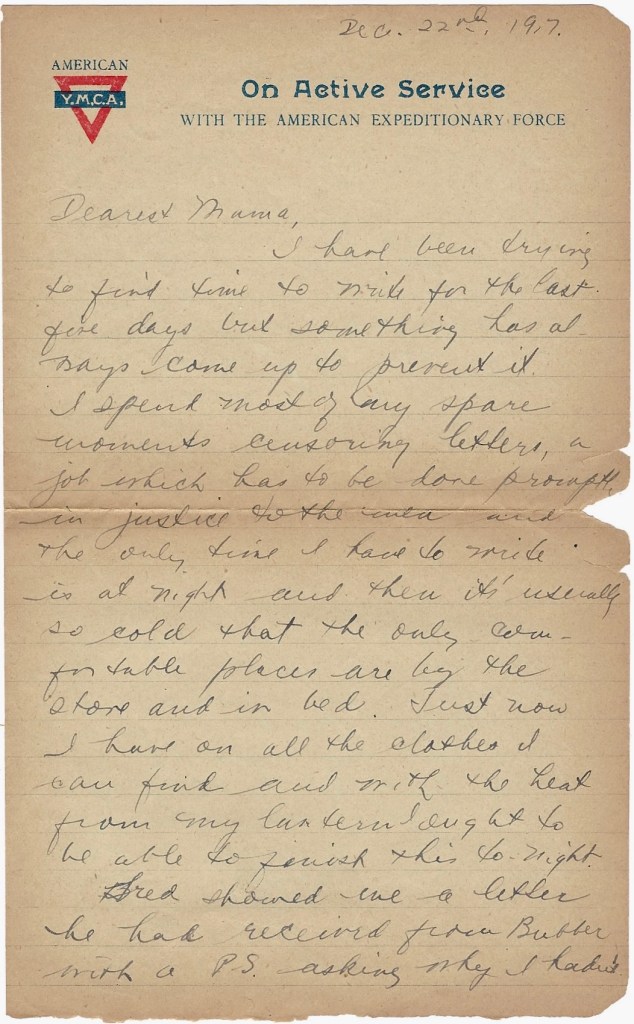 Dec. 22nd, 1917.
AMERICAN
Y.M.C.A.
On Active Service
WITH THE AMERICAN EXPEDITIONARY FORCE
Dearest Mama,
I have been trying
to find time to write for the last
five days but something has al-
ways come up to prevent it.
I spend most of my spare
moments censoring letters, a
job which has to be done promptly
in justice to the men and
the only time I have to write
is at night and then it's usually
so cold that the only com-
fortable places are by the
stove and in bed. Just now
I have on all the clothes I
can find and with the heat
from my lantern I ought to
be able to finish this to-night.
Fred showed me a letter
he had received from Bubber
with a P.S. asking why I hadn't